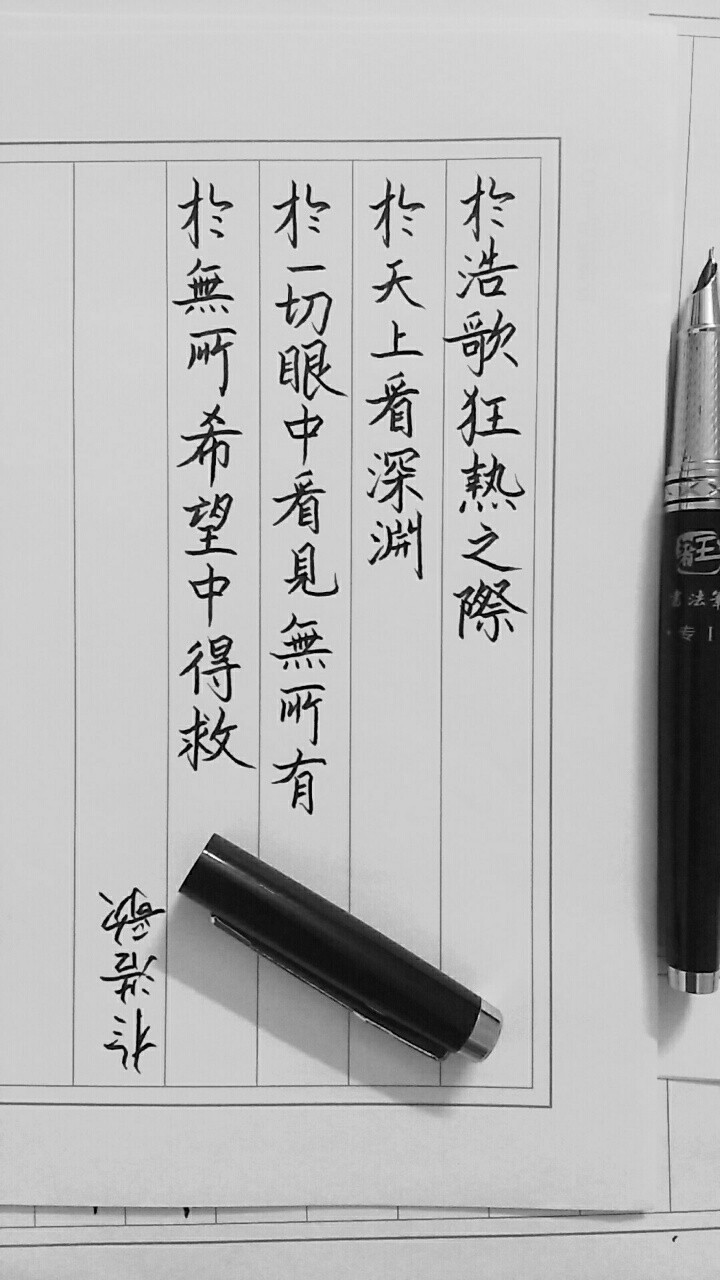 於浩歌狂熱之際
於天上看深淵
於一切眼中看見無所有
於無所希望中得救
於浩歌
書法筆